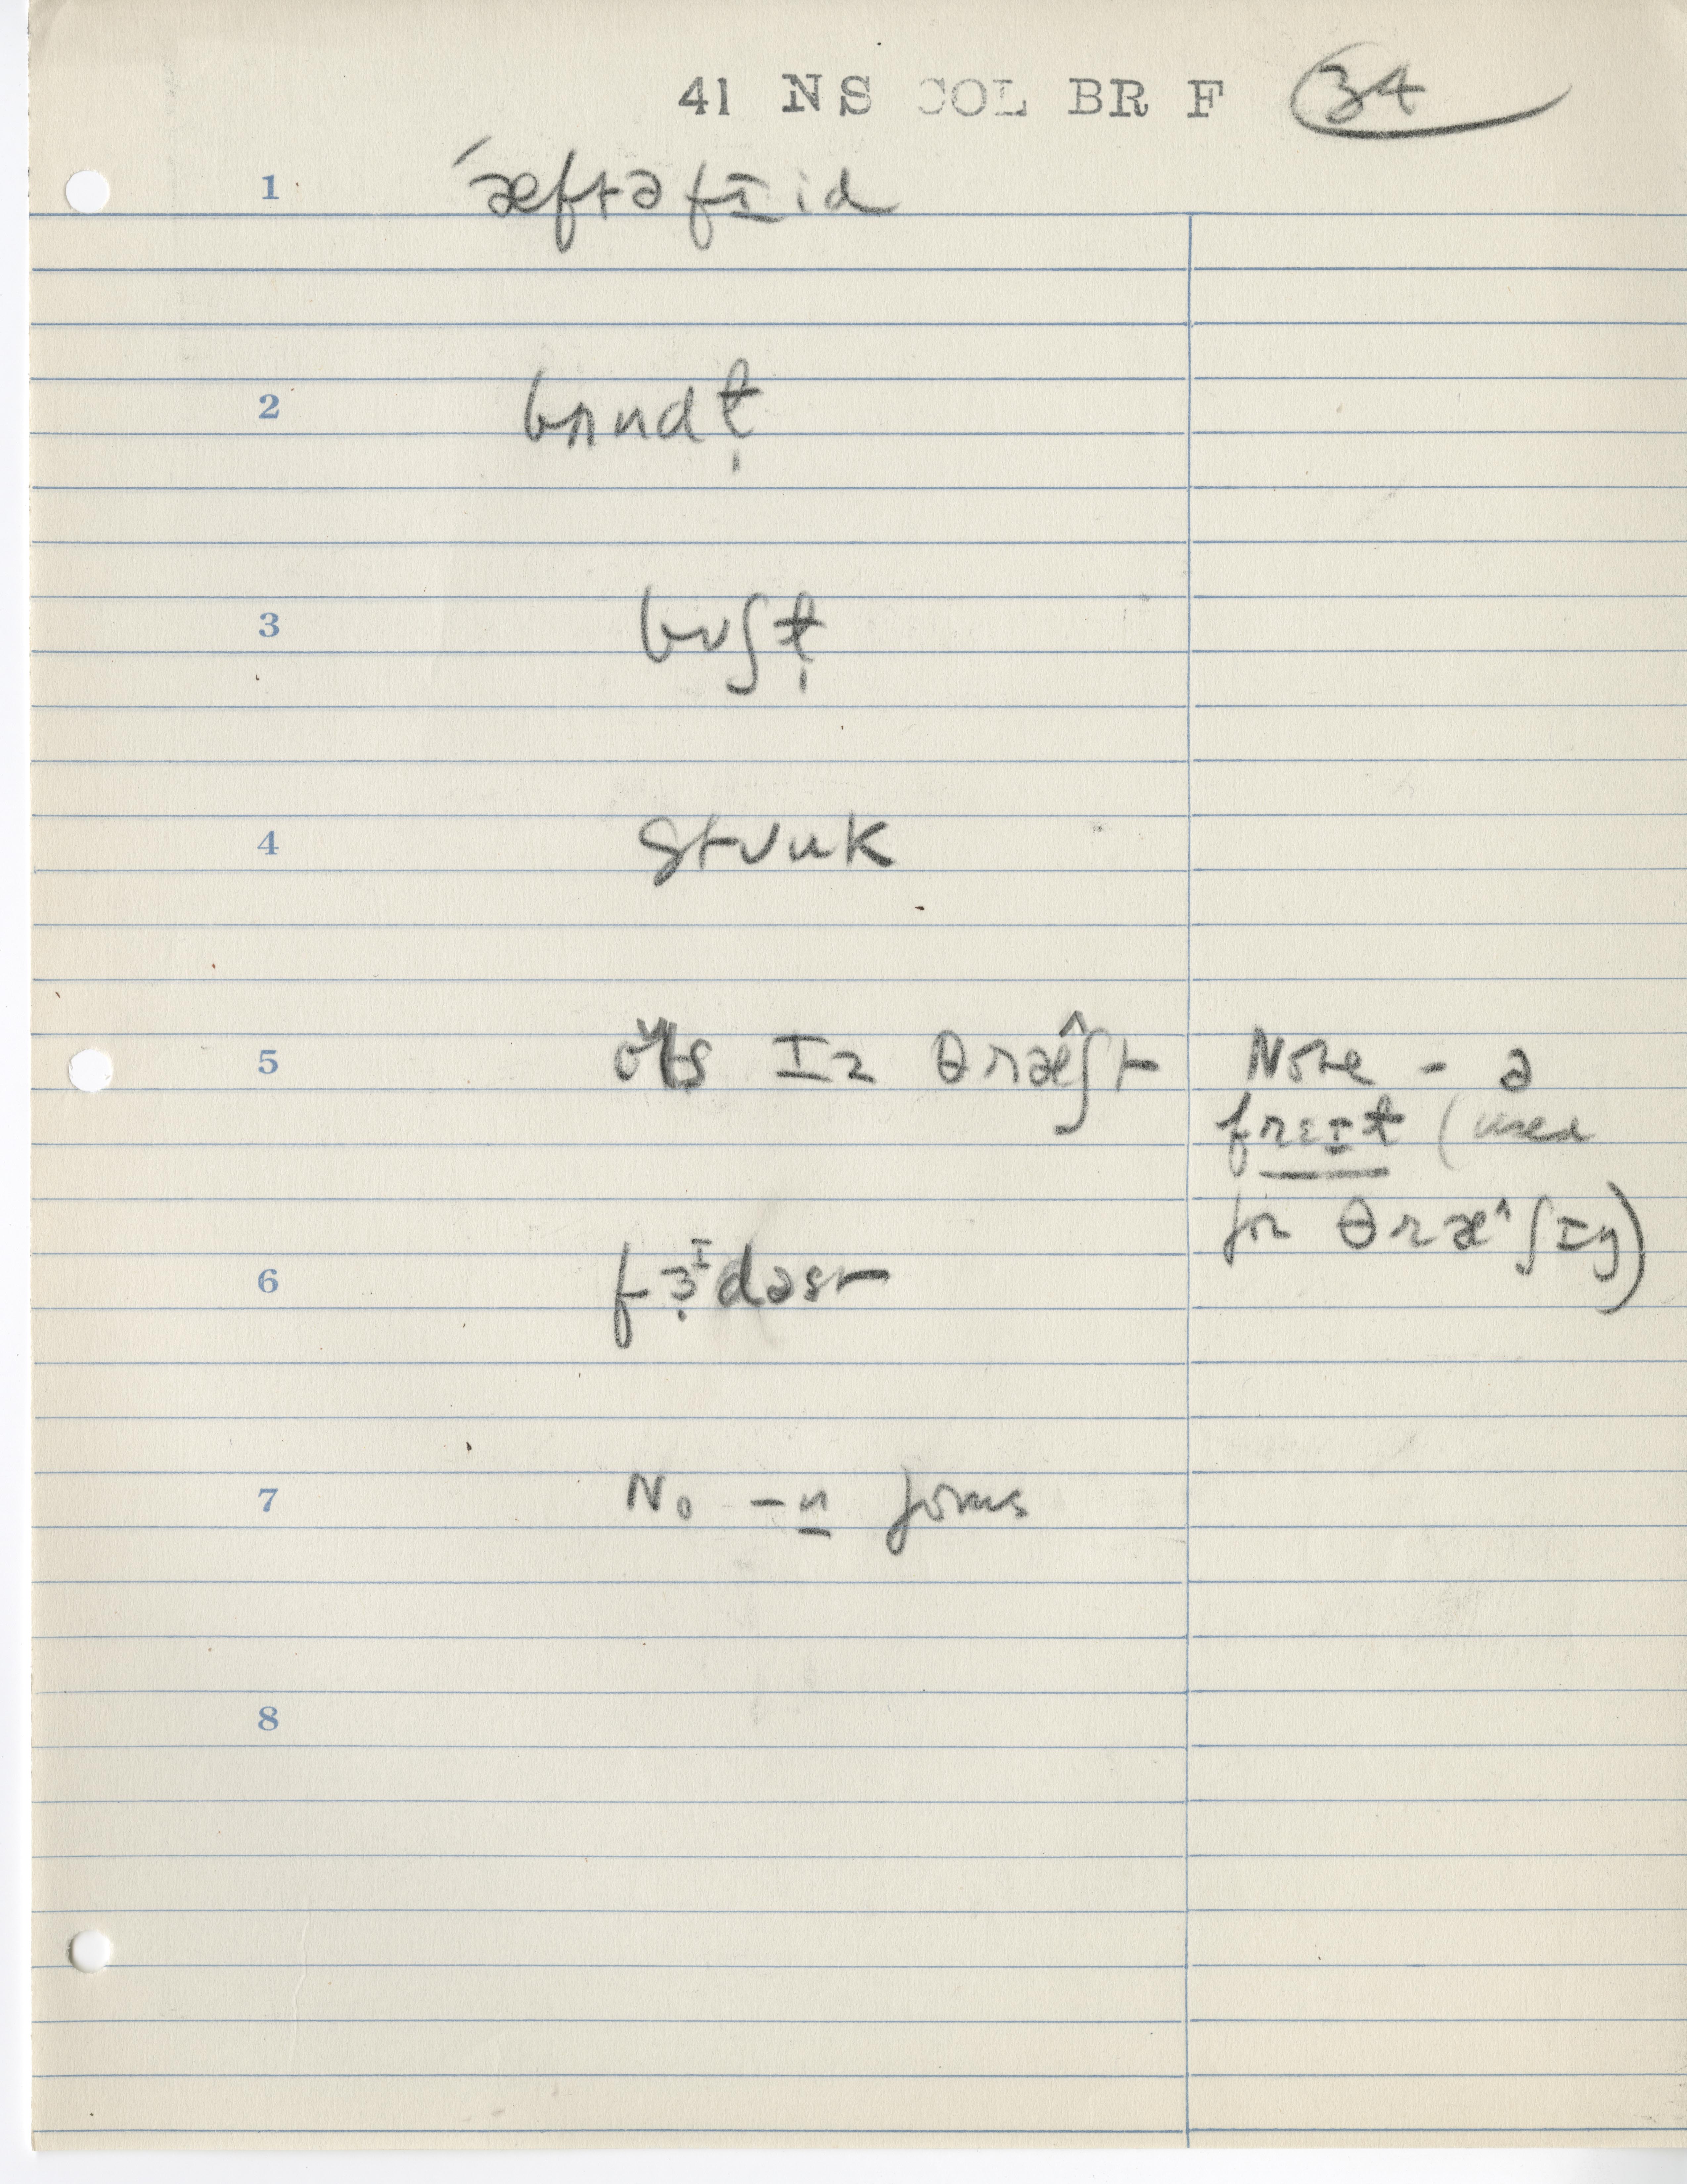 41 NS COL BR F 34
1 ´æftəfɪid
2 bʌndt̩
3 bʊʃt̩
4 stʊuk
5 ɪz θræ^ʃt Note - a
frɛɪt (used
for θræ^ʃɪŋ)
6 fɜ̣ᴵdəst
7 No -n forms
8